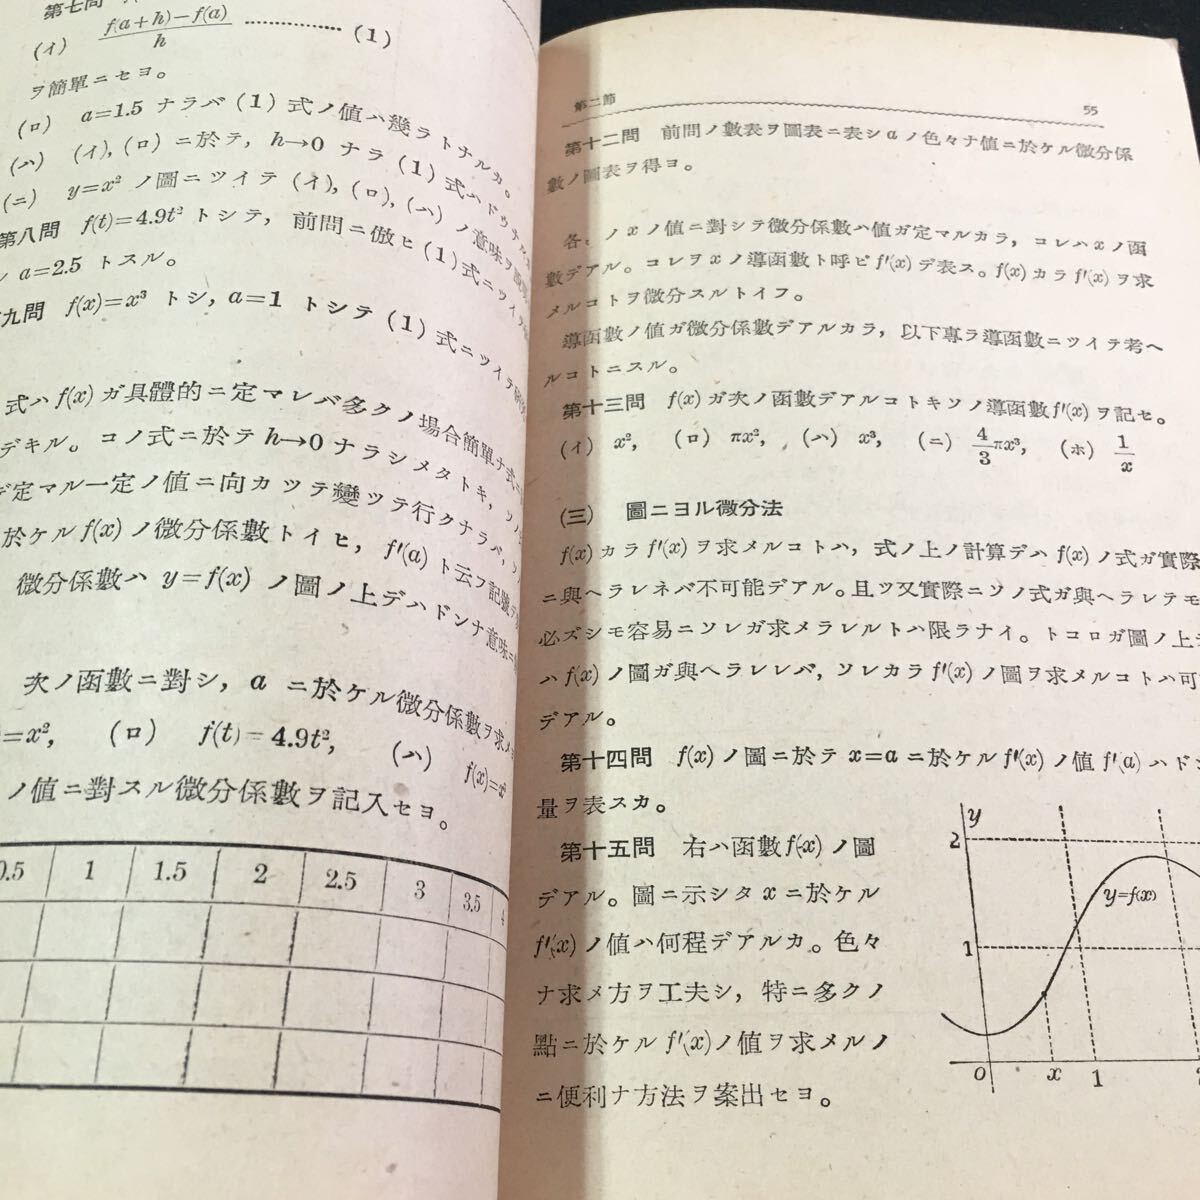 第七問
(イ) f(a+h)−f(a) / h ………………(1)
ヲ簡單ニセヨ。
(ロ) a=1.5 ナラバ (1) 式ノ値ハ幾ラトナルカ。
(ハ) (イ), (ロ) ニ於テ, h→0 ナラ (1) 式ハドウナル
(ニ) y=x² ノ圖ニツイテ (イ), (ロ), (ハ) ノ意味ヲ
第八問 f(t)=4.9t² トシテ, 前問ニ倣ヒ (1) 式ニツイテ
シ a=2.5 トスル。
九問 f(x)=x³ トシ, a=1 トシテ (1) 式ニツイテ
式ハ f(x) ガ具體的ニ定マレバ多クノ場合簡單ナ式ニ
デキル。コノ式ニ於テ h→0 ナラシメタトキ,
定マル一定ノ値ニ向カツテ變ツテ行クナラバ,
於ケル f(x) ノ微分係數トイヒ, f′(a) ト云フ記號デ
微分係數ハ y=f(x) ノ圖ノ上デハドンナ意味ニ
次ノ函數ニ對シ, a ニ於ケル微分係數ヲ求メ
=x², (ロ) f(t)=4.9t², (ハ) f(x)=x³
ノ値ニ對スル微分係數ヲ記入セヨ。
0.5 1 1.5 2 2.5 3 3.5 4
第二節 55
第十二問 前問ノ數表ヲ圖表ニ表シ a ノ色々ナ値ニ於ケル微分係
數ノ圖表ヲ得ヨ。
各、ノ x ノ値ニ對シテ微分係數ハ値ガ定マルカラ, コレハ x ノ函
數デアル。コレヲ x ノ導函數ト呼ビ f′(x) デ表ス。f(x) カラ f′(x) ヲ求
メルコトヲ微分スルトイフ。
導函數ノ値ガ微分係數デアルカラ, 以下專ラ導函數ニツイテ考ヘ
ルコトニスル。
第十三問 f(x) ガ次ノ函數デアルコトキソノ導函數 f′(x) ヲ記セ。
(イ) x², (ロ) πx², (ハ) x³, (ニ) 4/3 πx³, (ホ) 1/x
(三) 圖ニヨル微分法
f(x) カラ f′(x) ヲ求メルコトハ, 式ノ上ノ計算デハ f(x) ノ式ガ實際
ニ與ヘラレネバ不可能デアル。且ツ又實際ニソノ式ガ與ヘラレテモ
必ズシモ容易ニソレガ求メラレルトハ限ラナイ。トコロガ圖ノ上デ
ハ f(x) ノ圖ガ與ヘラレレバ, ソレカラ f′(x) ノ圖ヲ求メルコトハ可
デアル。
第十四問 f(x) ノ圖ニ於テ x=a ニ於ケル f′(x) ノ値 f′(a) ハドン
量ヲ表スカ。
第十五問 右ハ函數 f(x) ノ圖
デアル。圖ニ示シタ x ニ於ケル
f′(x) ノ値ハ何程デアルカ。色々
ナ求メ方ヲ工夫シ, 特ニ多クノ
點ニ於ケル f′(x) ノ値ヲ求メルノ
ニ便利ナ方法ヲ案出セヨ。
y
2
y=f(x)
1
O x 1